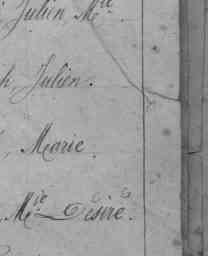 Julien, M.ie
Julien.
Marie.
M.ie Désiré.